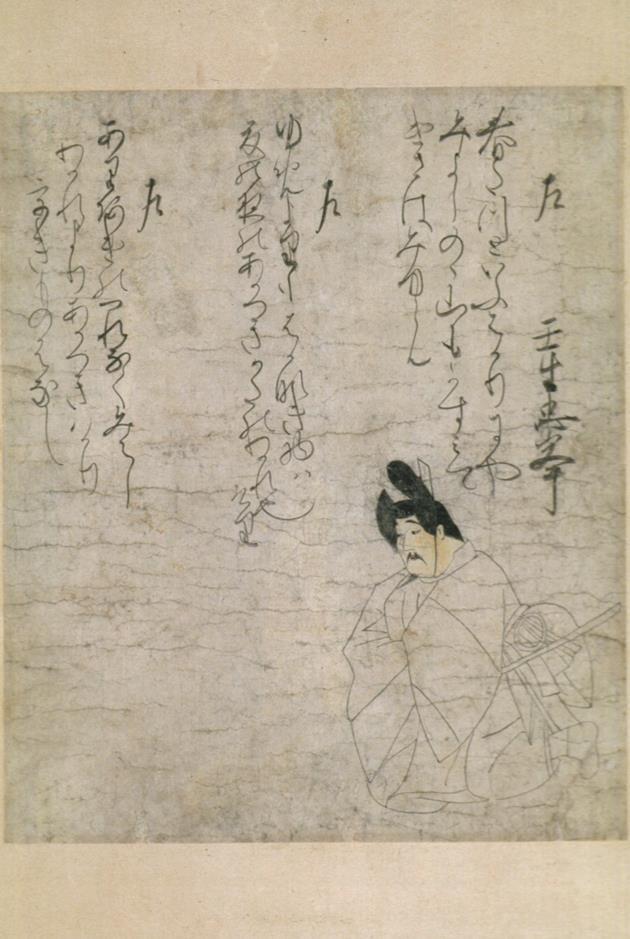 左
壬生忠岑
春たつといふはかりにや
みよしのゝ山もかすみて
けさはみゆらん
左
ゆめよりもはかなき物は
夏の夜のあかつきかたのわかれ
左
ありあけのつれなくみえし
わかれよりあかつきはかり
うきものはなし